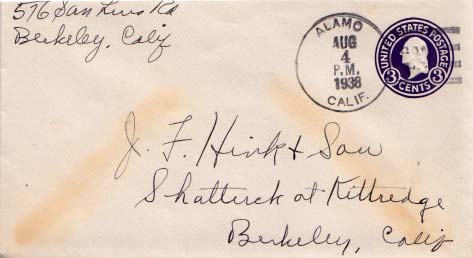 576 San Luis Rd
Berkeley, Calif
ALAMO
AUG
4
P.M.
1938
CALIF.
UNITED STATES POSTAGE
3 CENTS 3
J. F. Hink & Son
Shattuck at Kittredge
Berkeley, Calif